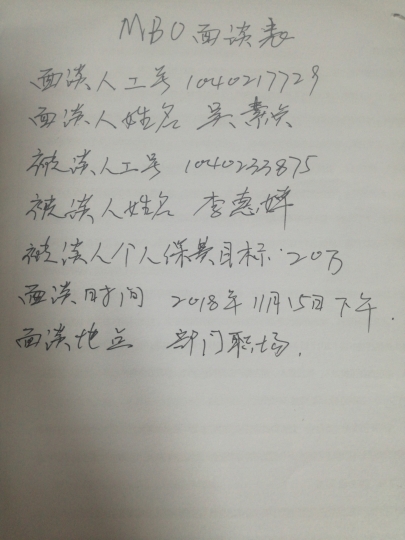 MBO面谈表
面谈人工号 1040217729
面谈人姓名 吴素贞
被谈人工号 1040233875
被谈人姓名 李惠婵
被谈人个人保费目标:20万
面谈时间 2018年11月15日下午.
面谈地点 部门职场.